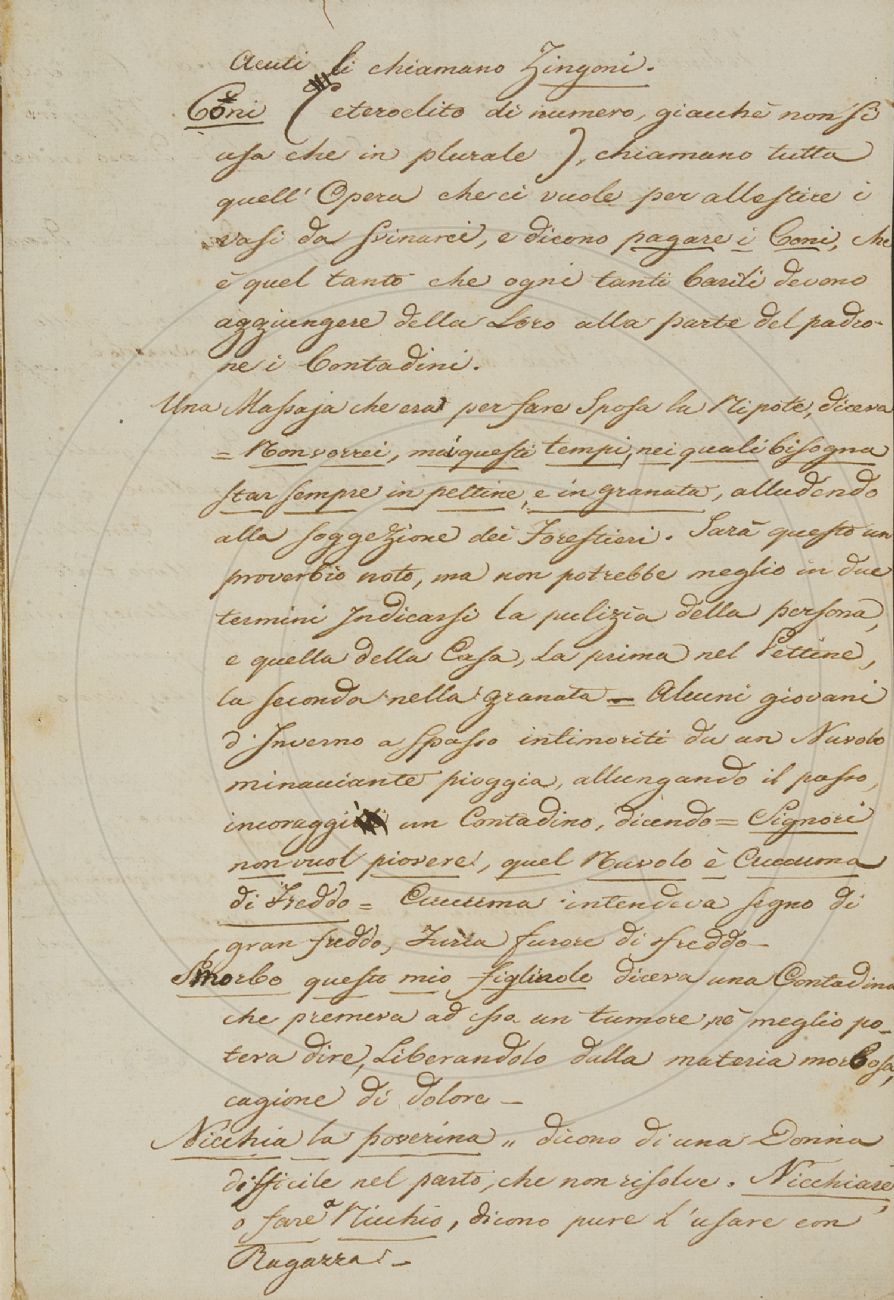 Acuti li chiamano Zingoni.
Côni (eteroclito di numero, giacchè non si
usa che in plurale), chiamano tutta
quell' Opera che ci vuole per allestire i
vasi da svinarci, e dicono pagare i Coni, che
è quel tanto che ogni tanti barili devono
aggiungere della Loro alla parte del padro-
ne i Contadini.
Una Massaja che era per fare Sposa la Nipote, diceva
= Non vorrei, ma questi tempi, nei quali bisogna
star sempre in pettine, e in granata, alludendo
alla soggezione dei Forestieri. Sarà questo un
proverbio noto, ma non potrebbe meglio in due
termini Indicarsi la pulizia della persona,
e quella della Casa, La prima nel Pettine,
la seconda nella granata = Alcuni giovani
d'Inverno a spasso intimoriti da un Nuvolo
minacciante pioggia, allungando il passo,
incoraggi un Contadino, dicendo = Signori
non vuol piovere, quel Nuvolo è Cucuma
di Freddo = Cucuma intendeva segno di
gran freddo, Furia furore di freddo -
Smorbo questo mio figliuolo diceva una Contadina
che premeva ad essa un tumore, nè meglio po-
teva dire, Liberandolo dalla materia morbosa,
cagione di dolore -
Nicchia la poverina „ dicono di una Donna
difficile nel parto, che non risolve. Nicchiare,
o fare a Nicchio, dicono pure l'usare con
Ragazza. -